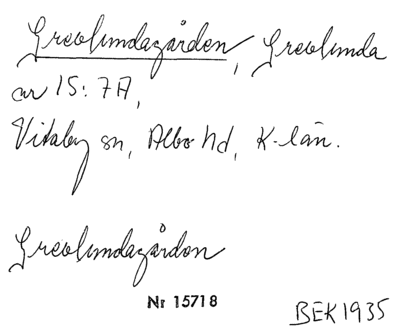 Grevlundagården, Grevlunda
av 15:7A,
Vitaby sn, Albo hd, K-län.
Grevlundagården
Nr 15718
BEK1935